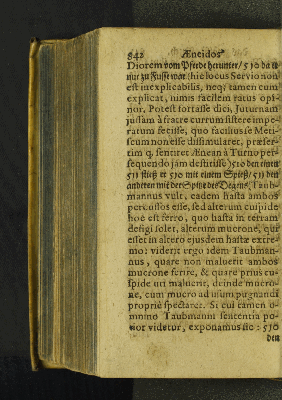 842 Æneidos
Diorem vom Pferde herunter / 510 da er
nur zu Fusse war: hic locus Servio non
est inexplicabilis, neq; tamen eum
explicat, nimis facilem ratus opi-
nor. Potest fortasse dici, Juturnam
jussam à fratre currum sistere impe-
ratum fecisse, quo facilius se Meti-
scum non esse dissimularet, præser-
tim q; sentiret Ænean à Turno per-
sequendo jam destitisse) 510 den einen
511 stieß er 510 mit einem Spieß / 511 den
anderen mit der Spitze des Degens, Taub-
mannus vult, eadem hasta ambos
percussos esse, sed alterum cuspide
hoc est ferro, quo hasta in terram
defigi solet, alterum mucrone, qui
esset in altero ejusdem hastæ extre-
mo: viderit ergo idem Taubman-
nus, quare non maluerit ambos
mucrone ferire, & quare prius cu-
spide uti maluerit, deinde mucro-
ne, cum mucro ad usum pugnandi
proprie spectaret. Si cui tamen o-
mnino Taubmanni sententia po-
tior videtur, exponamus sic: 510
den